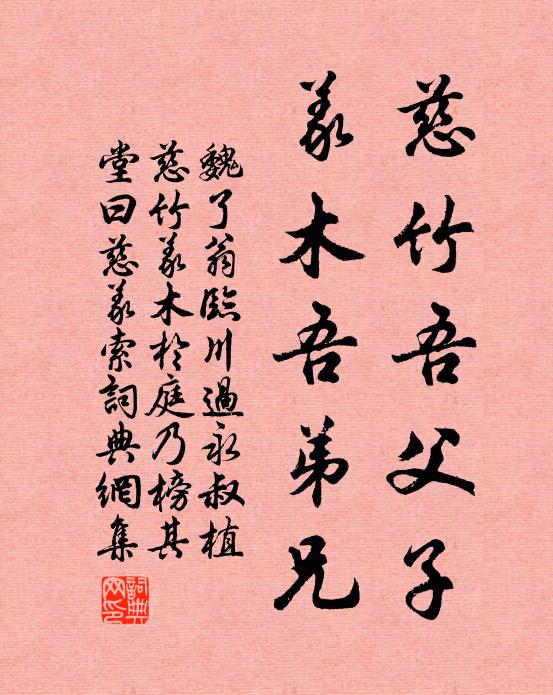 慈竹吾父子
義木吾弟兄
魏了翁臨川過永叔植
慈竹義木於庭乃榜其
堂曰慈義索詞典網集
詞典网印